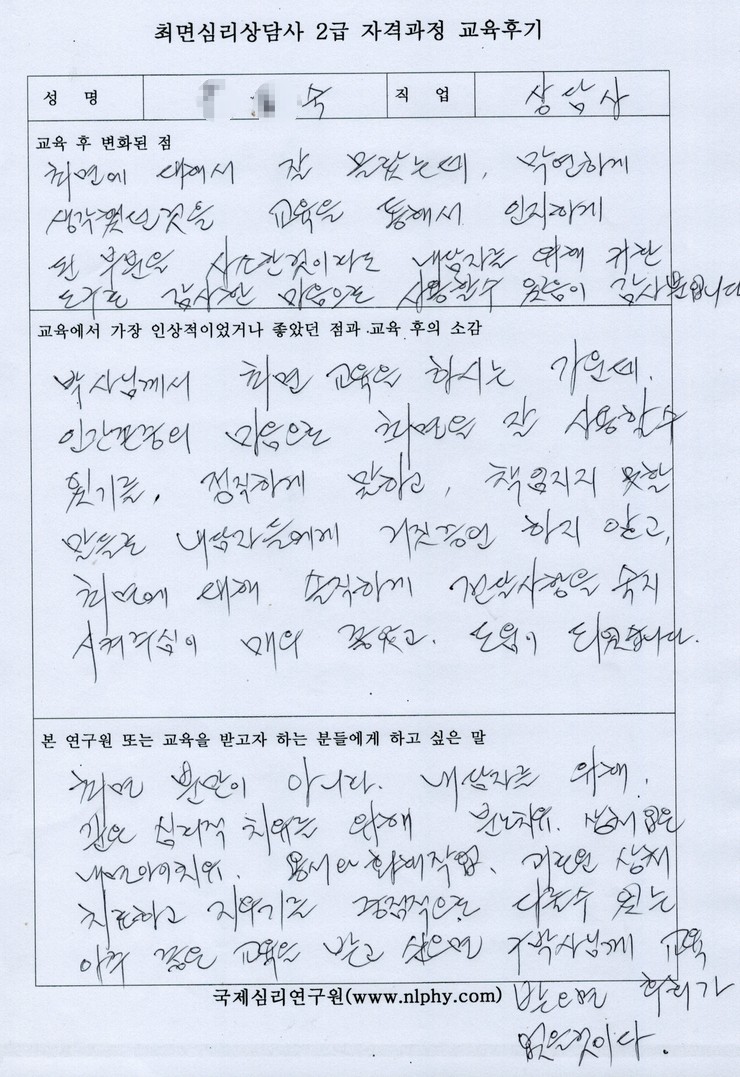 최면심리상담사 2급 자격과정 교육후기
성 명 숙 직 업 상담사
교육 후 변화된 점
최면에 대해서 잘 몰랐는데, 막연하게
생각했던것을 교육을 통해서 인지하게
된 부분을 사소한것이라도 내담자를 위해 귀한
도구로 감사한 마음으로 사용할수 있음이 감사뿐입니다
교육에서 가장 인상적이었거나 좋았던 점과 교육 후의 소감
박사님께서 최면 교육을 하시는 가운데,
인간존중의 마음으로 최면을 잘 사용할수
있기를, 정직하게 말하고, 책임지지 못할
말들로 내담자들에게 거짓증언 하지 않고,
최면에 대해 솔직하게 전달사항을 숙지
시켜주심이 매우 좋았고, 도움이 되었습니다.
본 연구원 또는 교육을 받고자 하는 분들에게 하고 싶은 말
최면 뿐만이 아니다. 내담자를 위해,
깊은 심리적 치유를 위해 분노치유, 상처받은
내면아이치유, 용서와 화해작업, 상처
치료하고 지우기를 경험적으로 다룰수 있는
아주 좋은 교육을 받고 싶으면 박사님께 교육
받으면 후회가
없을것이다.
국제심리연구원(www.nlphy.com)